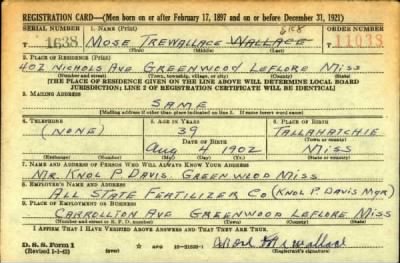 REGISTRATION CARD—(Men born on or after February 17, 1897 and on or before December 31, 1921)
SERIAL NUMBER 1. NAME (Print) ORDER NUMBER
T 1638 MOSE TREWALLACE WALLACE 11038
(First) (Middle) (Last)
2. PLACE OF RESIDENCE (Print)
402 NICHOLS AVE GREENWOOD LEFLORE MISS
(Number and street) (Town, township, village, or city) (County) (State)
[THE PLACE OF RESIDENCE GIVEN ON THE LINE ABOVE WILL DETERMINE LOCAL BOARD
JURISDICTION; LINE 2 OF REGISTRATION CERTIFICATE WILL BE IDENTICAL]
3. MAILING ADDRESS
SAME
[Mailing address if other than place indicated on line 2. If same insert word same]
4. TELEPHONE 5. AGE IN YEARS 6. PLACE OF BIRTH
(NONE) 39 TALLAHATCHIE
DATE OF BIRTH (Town or county)
AUG 4 1902 MISS
(Exchange) (Number) (Mo.) (Day) (Yr.) (State or country)
7. NAME AND ADDRESS OF PERSON WHO WILL ALWAYS KNOW YOUR ADDRESS
MR. KNOL P. DAVIS. GREENWOOD MISS
8. EMPLOYER'S NAME AND ADDRESS
ALL STATE FERTILIZER CO (KNOL P. DAVIS MGR)
9. PLACE OF EMPLOYMENT OR BUSINESS
CARROLLTON AVE GREENWOOD LEFLORE MISS
(Number and street or R. F. D. number) (Town) (County) (State)
I AFFIRM THAT I HAVE VERIFIED ABOVE ANSWERS AND THAT THEY ARE TRUE.
D. S. S. Form 1
(Revised 1-1-42) (Registrant's signature)